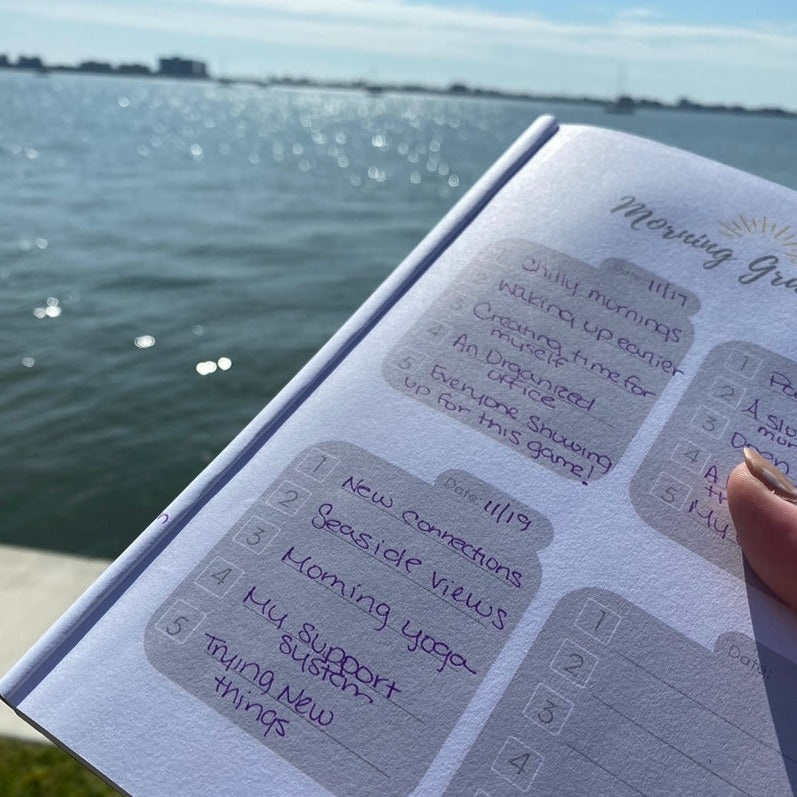 Morning Gra
Date: 11/17
1 Chilly mornings
2 Waking up earlier
3 Creating time for
myself
4 An Organized
office
5 Everyone showing
up for this game!
1
2 A slo
3
4 A
th
5 My
Date: 11/19
1 New connections
2 Seaside views
3 Morning yoga
4 My support
system
5 Trying New
things
Date:
1
2
3
4